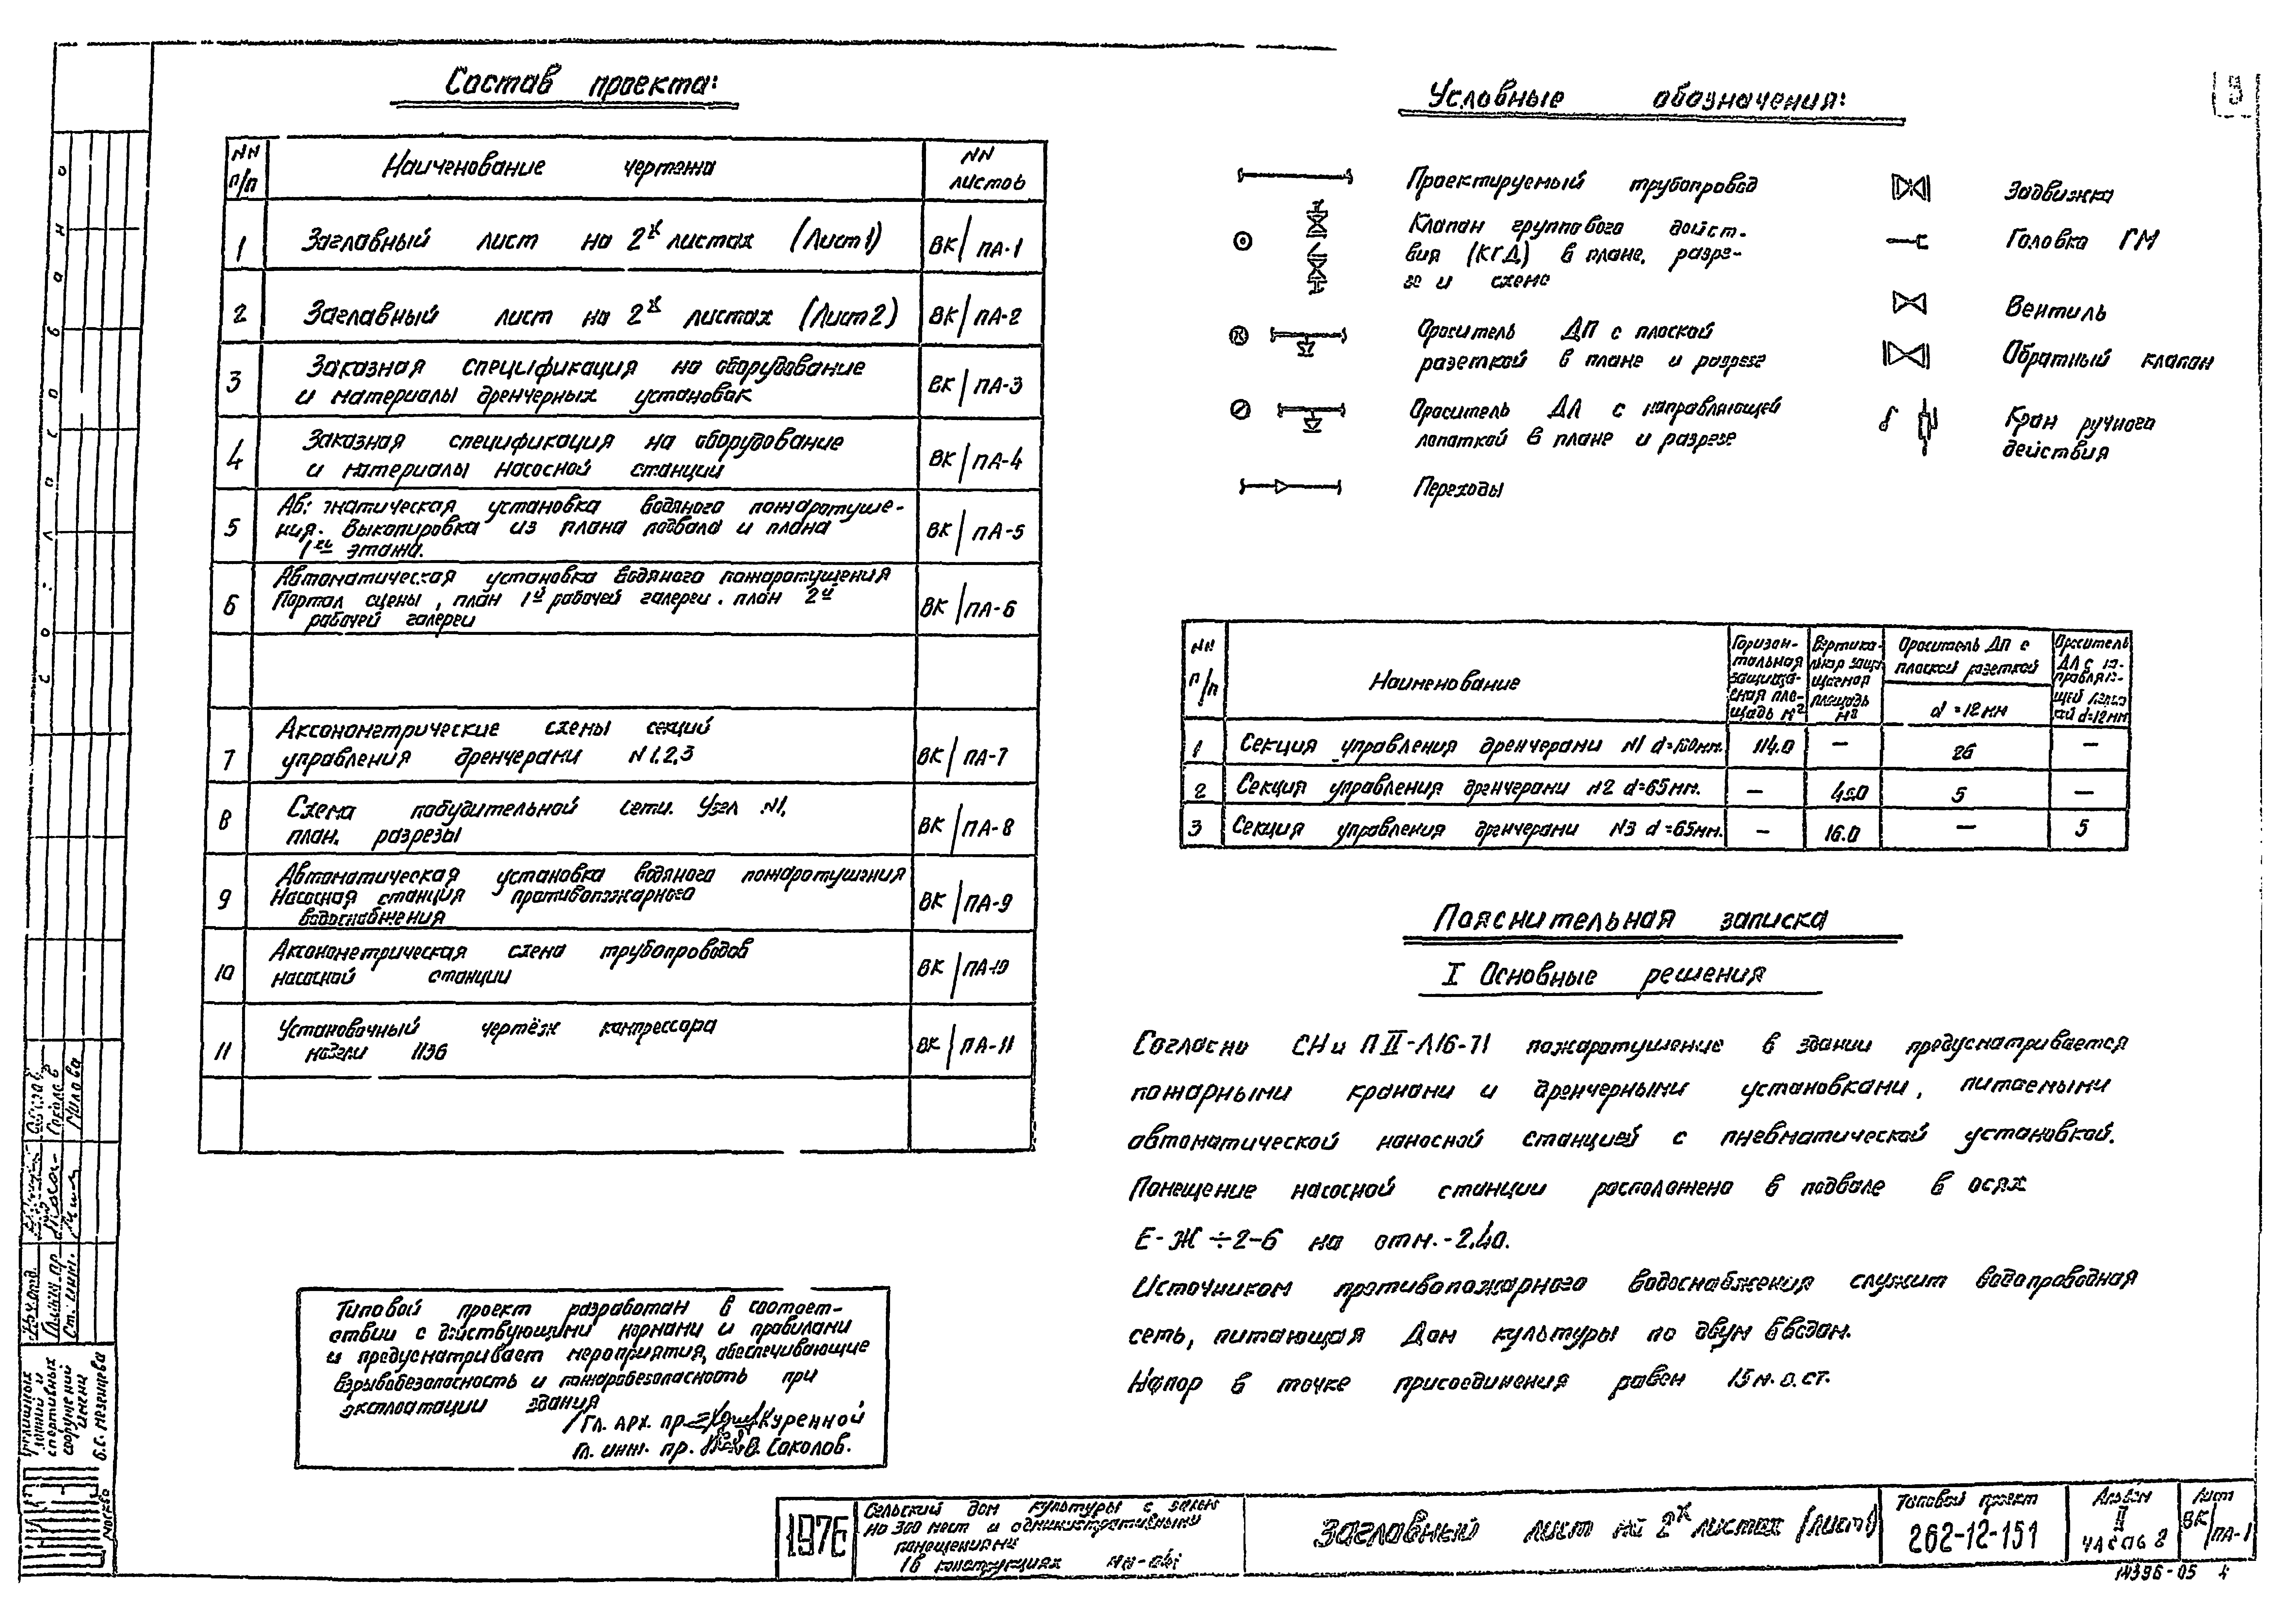 Состав проекта:
NN п/п Наименование чертежа NN листов
1 Заглавный лист на 2х листах (Лист 1) ВК/ПА-1
2 Заглавный лист на 2х листах (Лист 2) ВК/ПА-2
3 Заказная спецификация на оборудование
и материалы дренчерных установок ВК/ПА-3
4 Заказная спецификация на оборудование
и материалы насосной станции ВК/ПА-4
5 установка водяного пожаротуше-
ния. Выкопировка из плана подвала и плана
1го этажа. ВК/ПА-5
6 Автоматическая установка водяного пожаротушения
Портал сцены, план 1й рабочей галереи. план 2й
рабочей галереи ВК/ПА-6
7 Аксонометрические схемы секций
управления дренчерами N1,2,3 ВК/ПА-7
8 Схема побудительной сети. Узел N1,
план, разрезы ВК/ПА-8
9 Автоматическая установка водяного пожаротушения
Насосная станция противопожарного
водоснабжения ВК/ПА-9
10 Аксонометрическая схема трубопроводов
насосной станции ВК/ПА-10
11 Установочный чертёж компрессора
модели 1136 ВК/ПА-11
Типовой проект разработан в соответ-
ствии с действующими нормами и правилами
и предусматривает мероприятия, обеспечивающие
взрывобезопасность и пожаробезопасность при
эксплоатации здания
Гл. арх. пр. Куренной
Гл. инж. пр. Соколов.
Условные обозначения:
Проектируемый трубопровод
Клапан группового дейст-
вия (КГД) в плане, разре-
зе и схеме
Ороситель ДП с плоской
розеткой в плане и разрезе
Ороситель ДЛ с направляющей
лопаткой в плане и разрезе
Переходы
Задвижка
Головка ГМ
Вентиль
Обратный клапан
Кран ручного
действия
NN п/п
Наименование
Горизон-
тальная
защища-
емая пло-
щадь м²
Вертика-
льная защи-
щаемая
площадь
м²
Ороситель ДП с
плоской розеткой
d=12мм
Ороситель
ДЛ с на-
правляю-
щей лопат-
кой d=12мм
1 Секция управления дренчерами N1 d=100мм. 114.0 — 26 —
2 Секция управления дренчерами N2 d=65мм. — 45.0 5 —
3 Секция управления дренчерами N3 d=65мм. — 16.0 — 5
Пояснительная записка
I Основные решения
Согласно СНиП II-Л16-71 пожаротушение в здании предусматривается
пожарными кранами и дренчерными установками, питаемыми
автоматической насосной станцией с пневматической установкой.
Помещение насосной станции расположено в подвале в осях
Е-Ж÷2-6 на отм.-2,40.
Источником противопожарного водоснабжения служит водопроводная
сеть, питающая Дом культуры по двум вводам.
Напор в точке присоединения равен 15м.в.ст.
1976
Сельский дом культуры с залом
на 300 мест и административными
помещениями
/в конструкциях
Заглавный лист на 2х листах (лист 1)
Типовой проект
262-12-151
Альбом
II
часть 2
Лист
ВК/ПА-1
14396-05 4
зрелищных
зданий и
спортивных
сооружений
имени
Б.С. Мезенцева
Москва
Нач. отд.
Гл. инж. пр. Соколов
Ст. инж. Милова